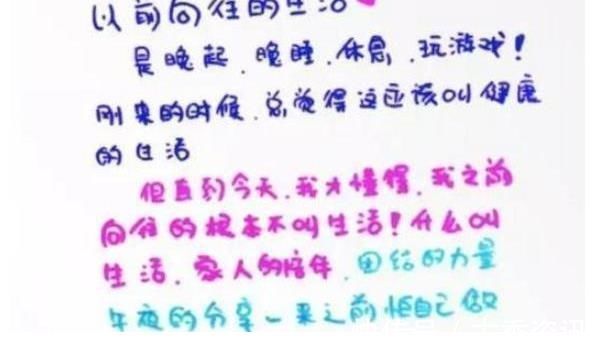 以前向往的生活
是晚起、晚睡、休息、玩游戏!
刚来的时候,总觉得这应该叫健康
的生活
但直到今天,我才懂得,我之前
向往的根本不叫生活!什么叫
生活,家人的陪伴,团结的力量
午夜的分享一来之前怕自己做